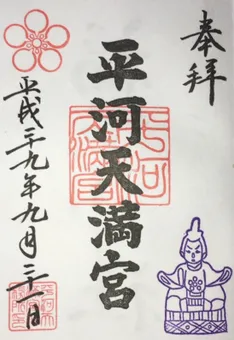 奉拝
平河天満宮
平成二十九年九月二十一日